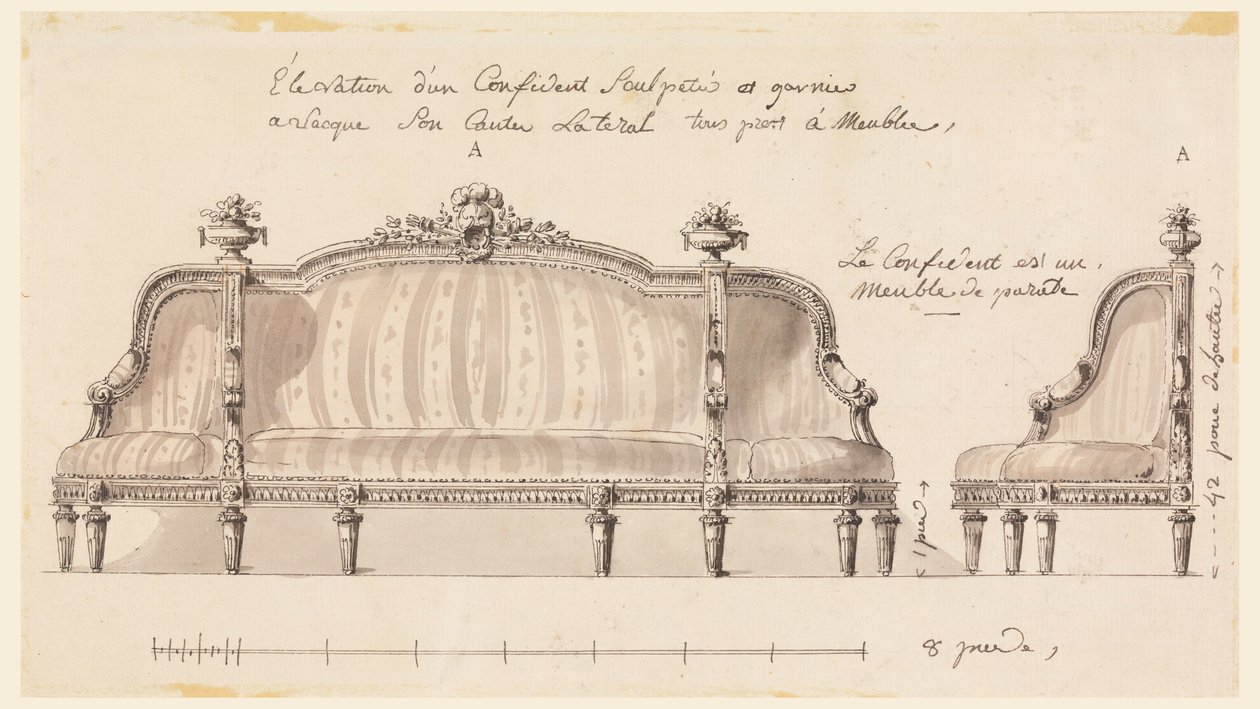 Élevation d'un Confident Sculpeté et garnie
avacque Son Coutez Lateral tous prest á Meublee,
A
A
Le Confident est un
Meuble de parade
42 pouce de hauteu
1 pied
8 pieds,